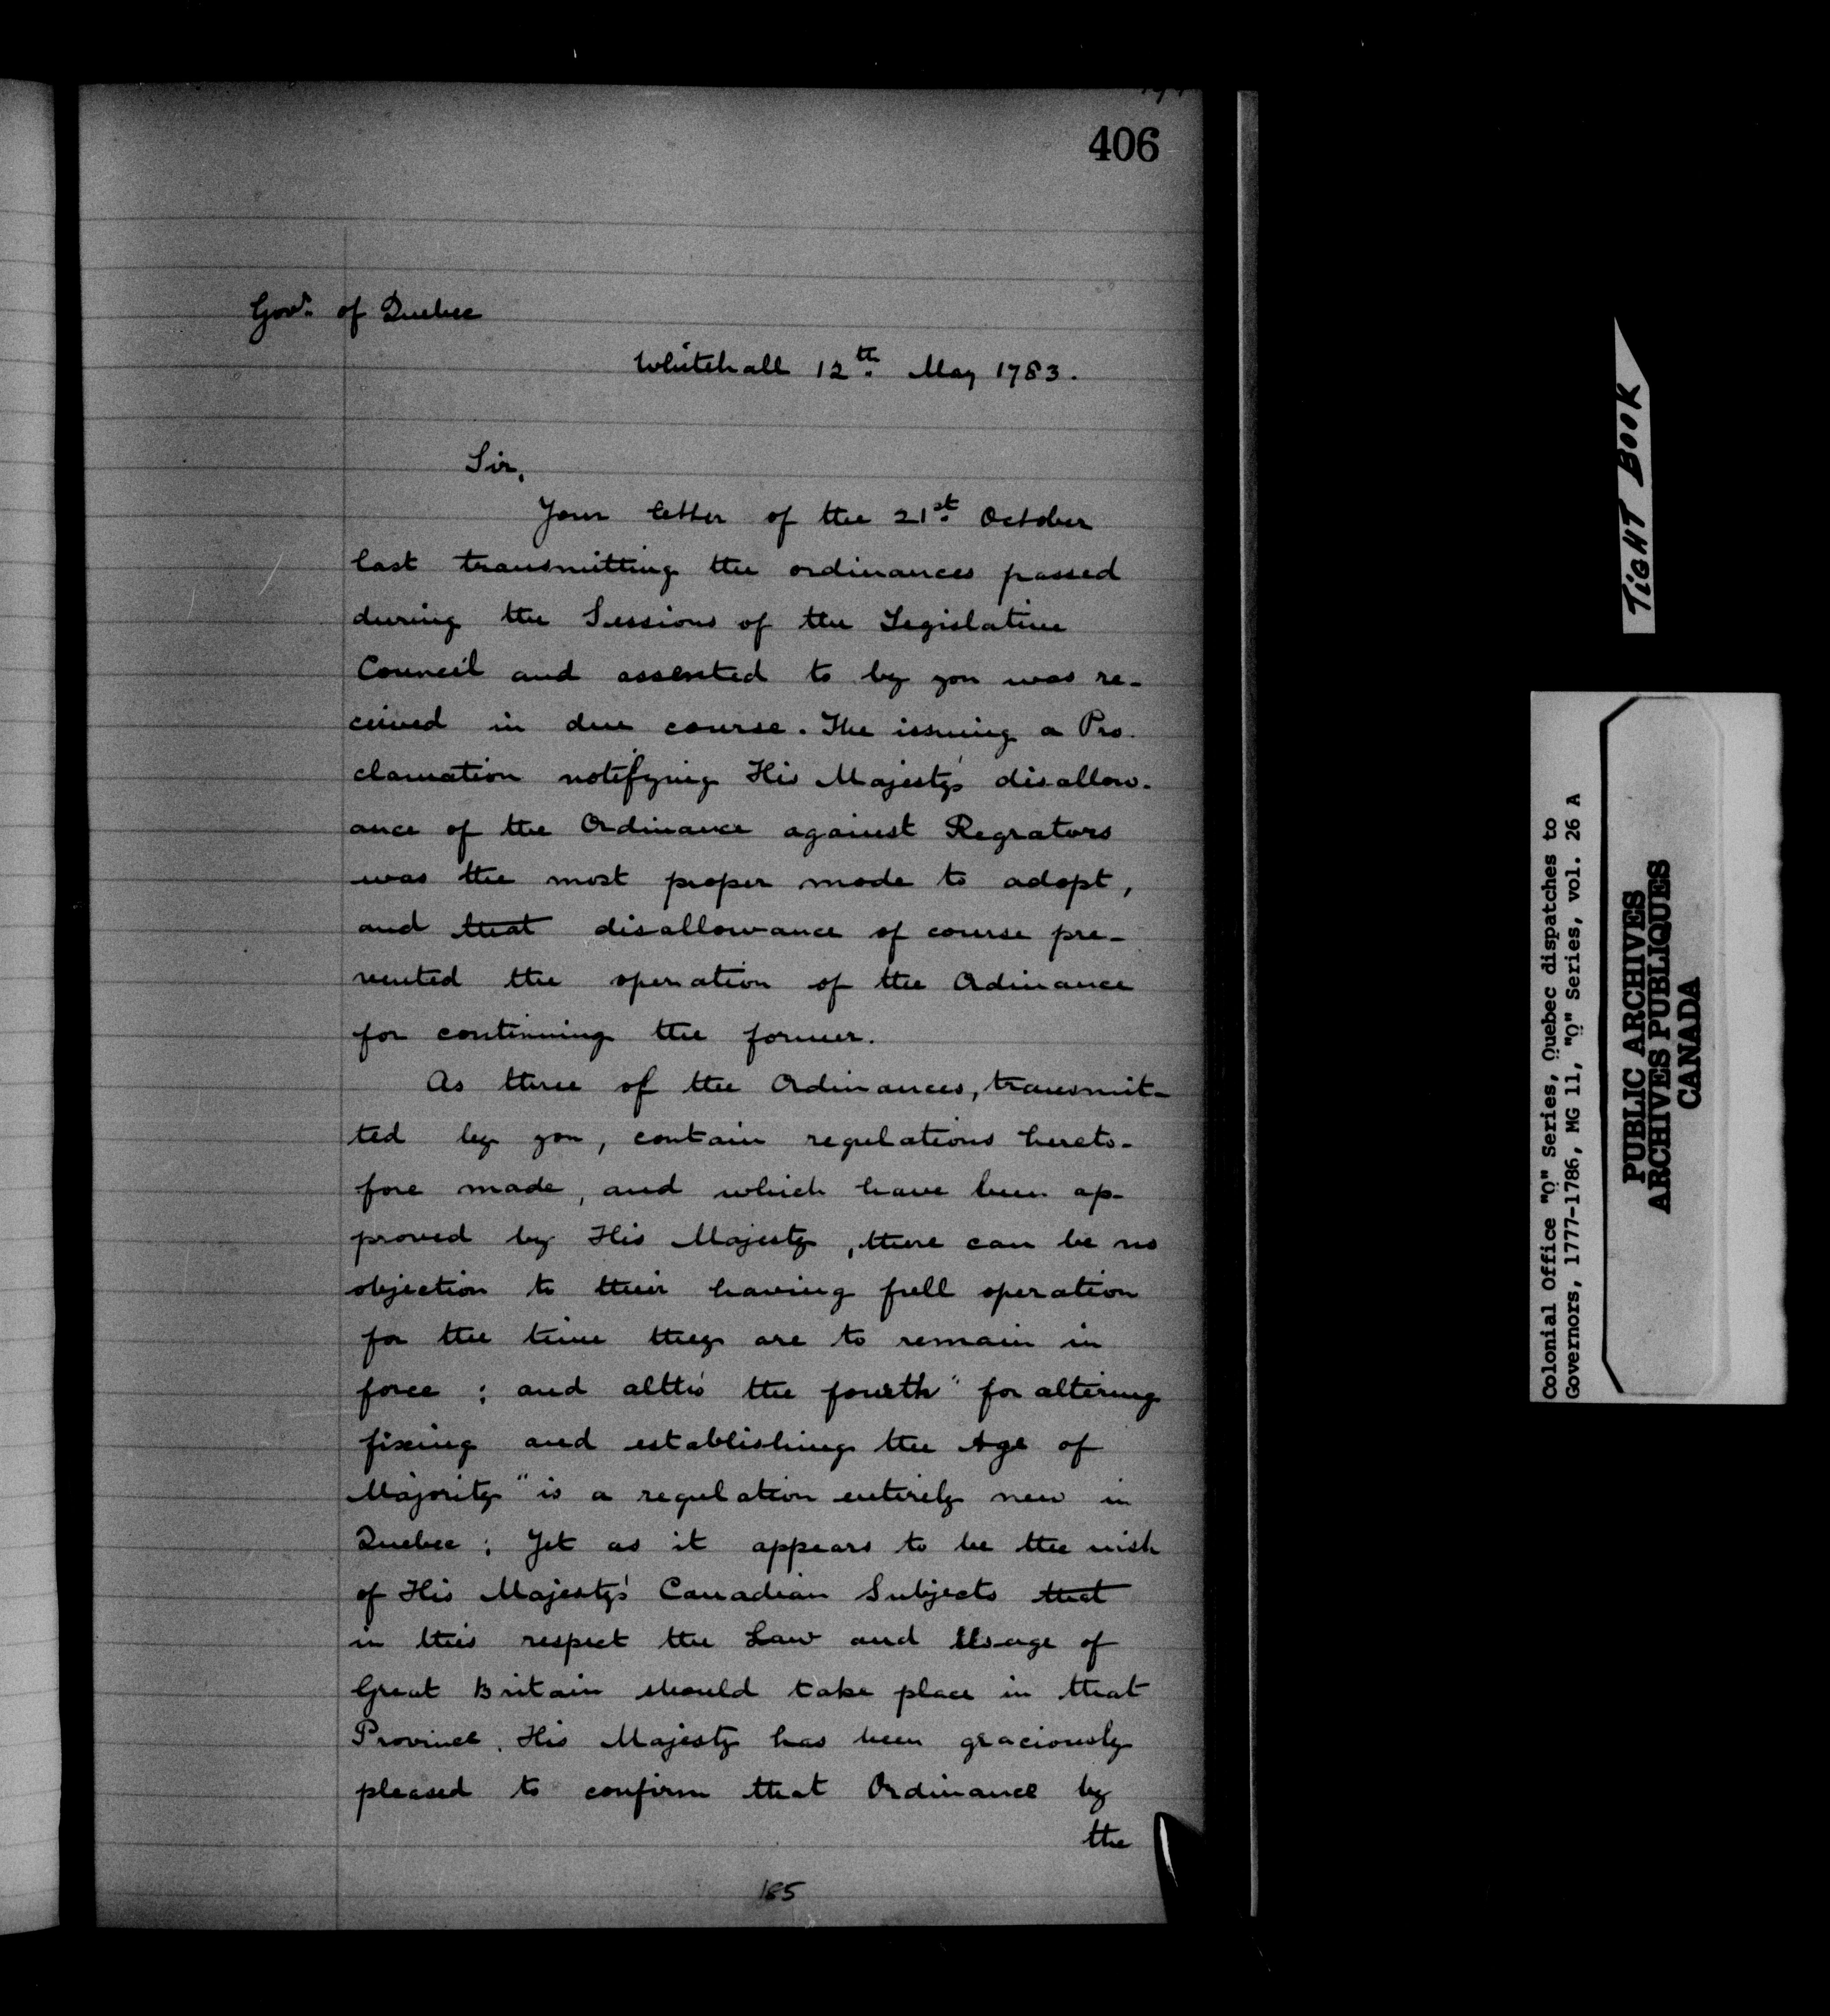 406
Govr. of Quebec
Whitehall 12th. May 1783.
Sir,
Your letter of the 21st. October
last transmitting the ordinances passed
during the Sessions of the Legislative
Council and assented to by you was re-
ceived in due course. The issuing a Pro-
clamation notifying His Majesty's disallow-
ance of the Ordinance against Regrators
was the most proper mode to adopt,
and that disallowance of course pre-
vented the operation of the Ordinance
for continuing the former.
As three of the Ordinances, transmit-
ted by you, contain regulations hereto-
fore made, and which have been ap-
proved by His Majesty, there can be no
objection to their having full operation
for the time they are to remain in
force; and altho' the fourth "for altering
fixing and establishing the Age of
Majority" is a regulation entirely new in
Quebec; Yet as it appears to be the wish
of His Majesty's Canadian Subjects that
in this respect the Law and Usage of
Great Britain should take place in that
Province, His Majesty has been graciously
pleased to confirm that Ordinance by
the
185
TIGHT BOOK
Colonial Office "Q" Series, Quebec dispatches to
Governors, 1777-1786, MG 11, "Q" Series, vol. 26 A
PUBLIC ARCHIVES
ARCHIVES PUBLIQUES
CANADA